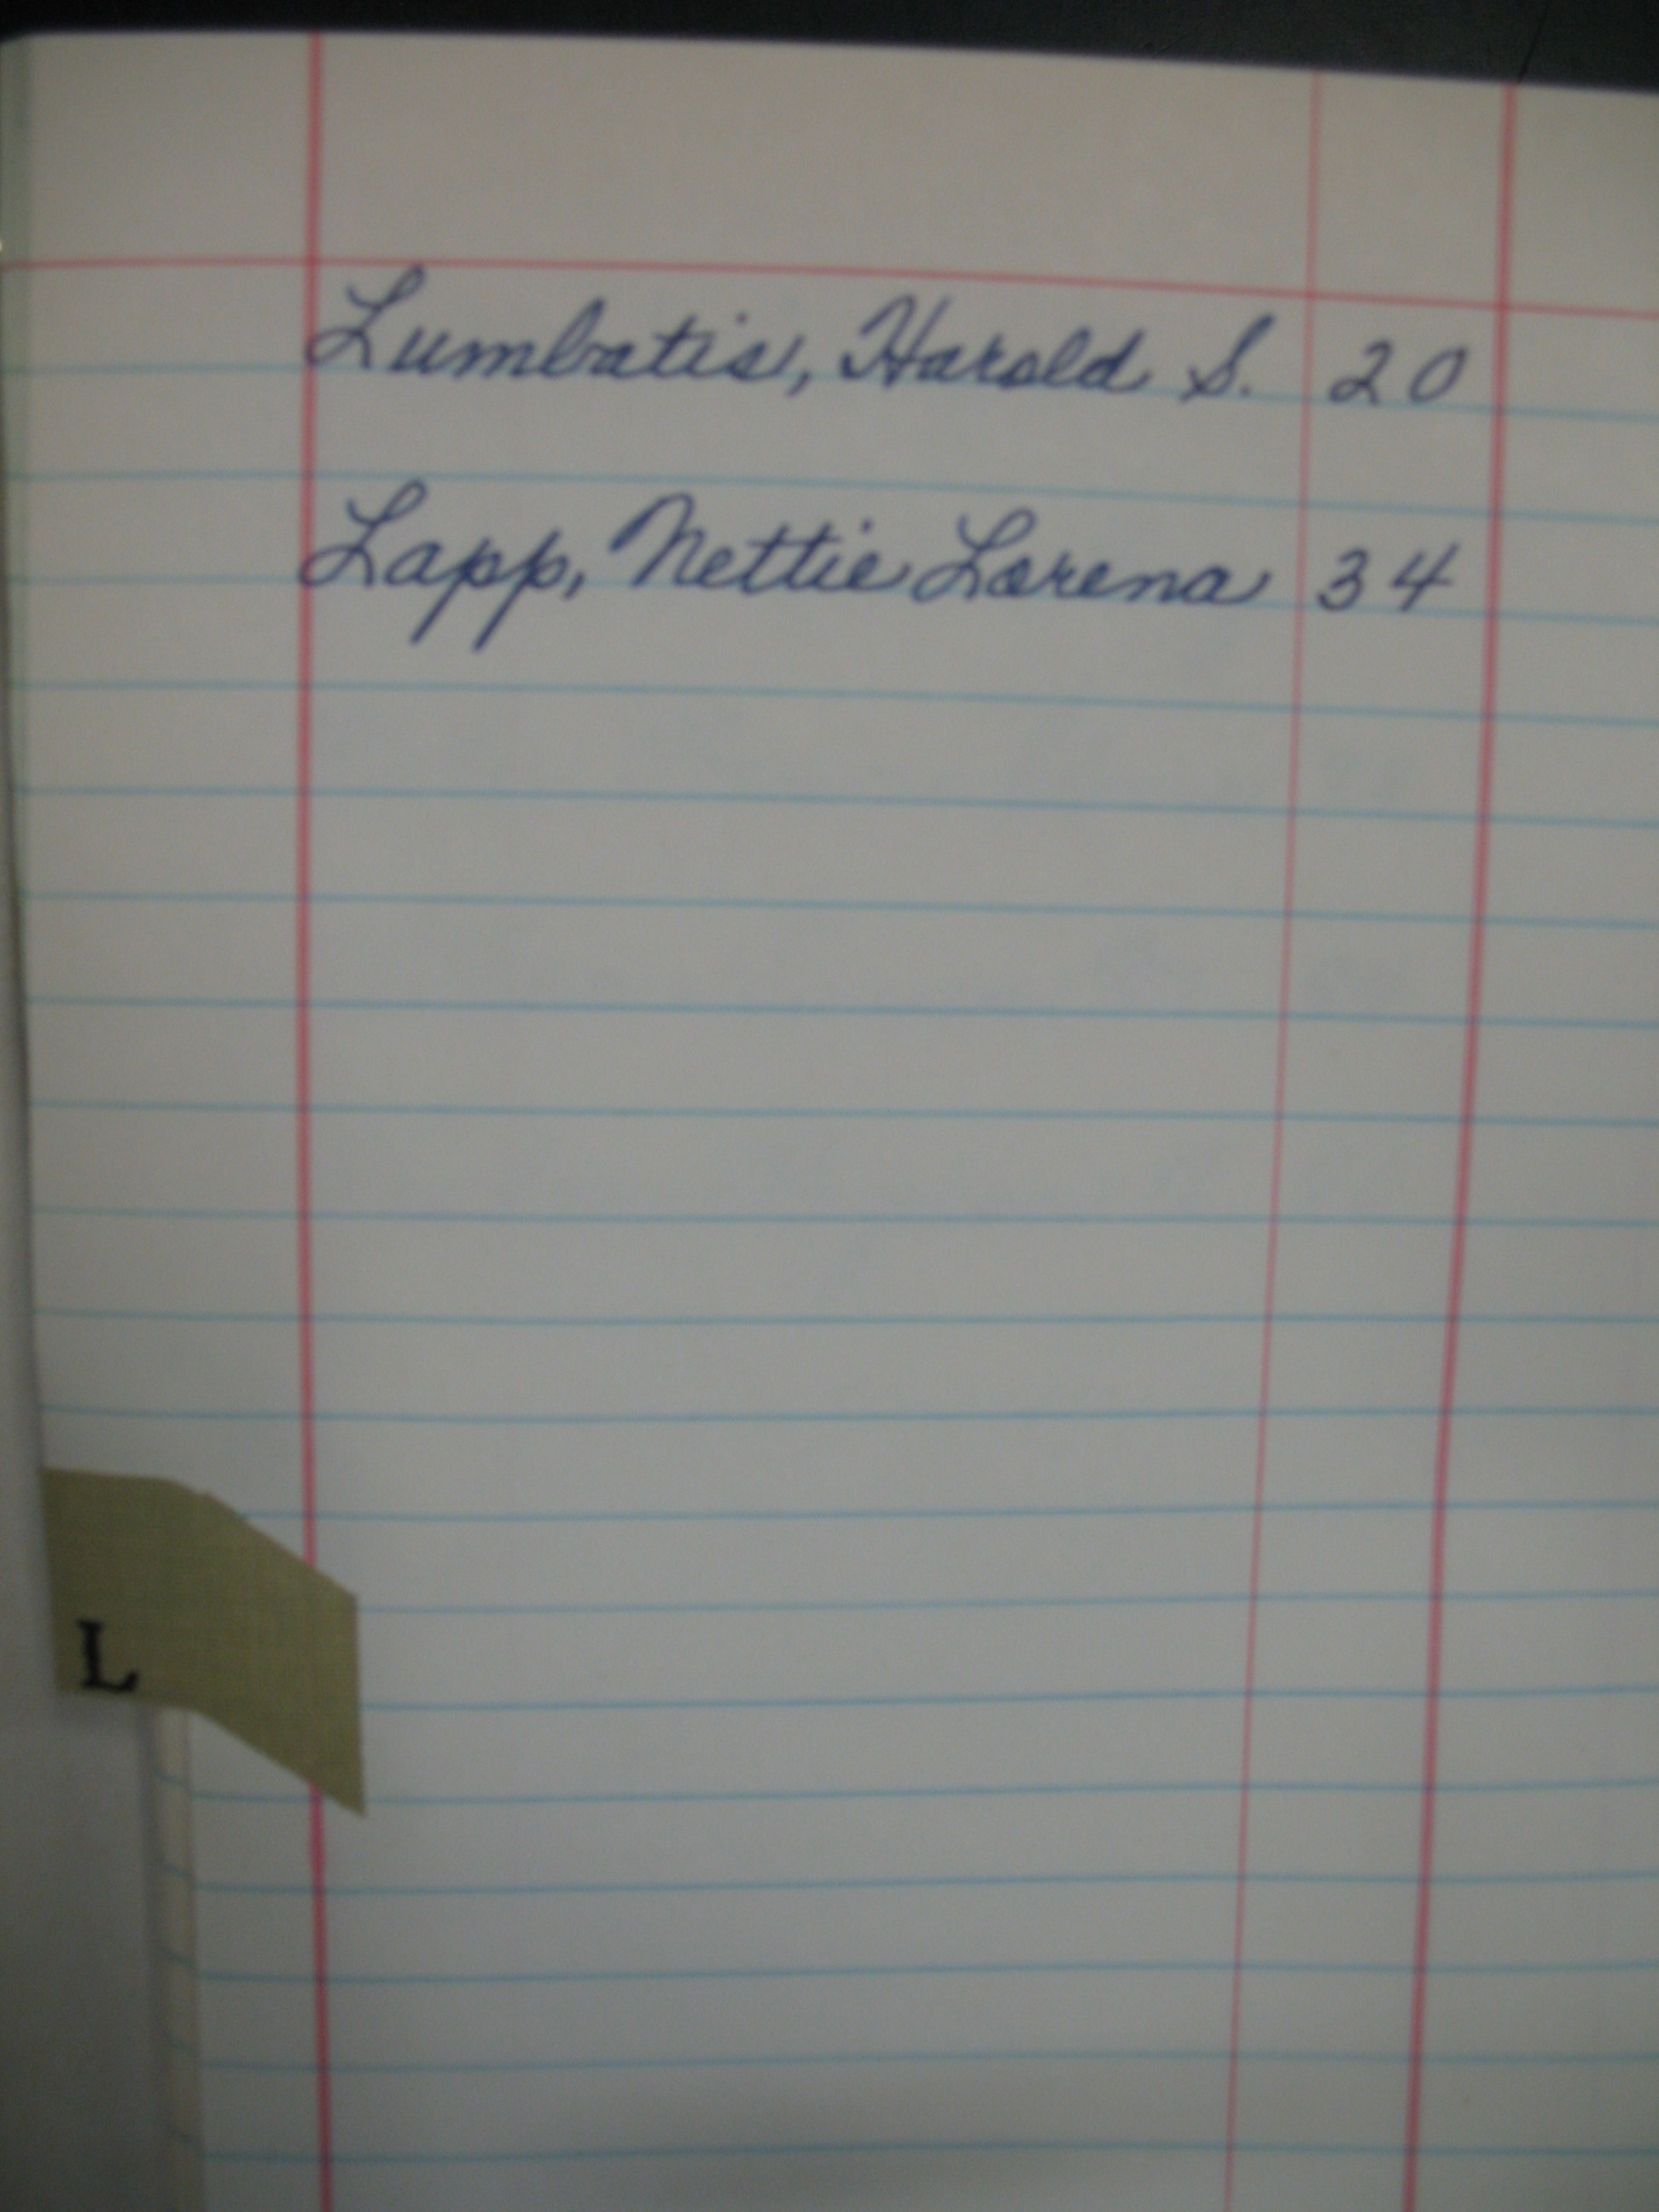 Lumbatis, Harold S. 20
Lapp, Nettie Lorena 34
L